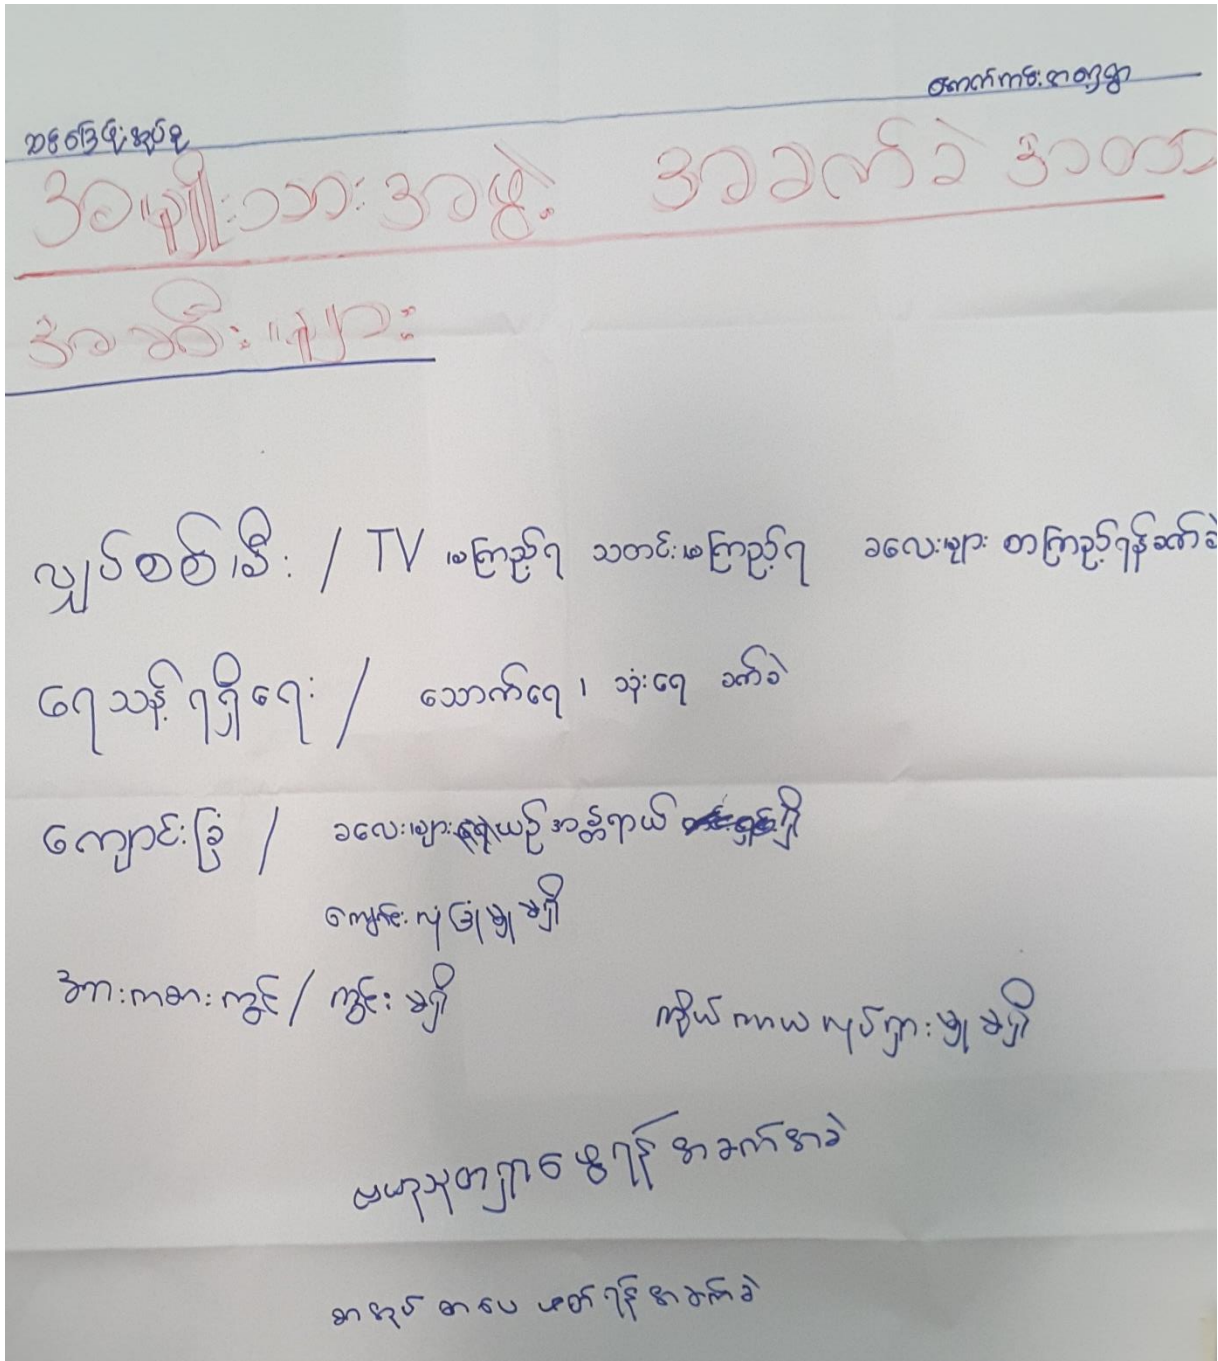 အမျိုးသားအဖွဲ့ အခက်ခဲ အတာ
အခစီးများ
လျှပ်စစ်မီး / TV မကြည့်ရ သတင်းမကြည့်ရ ခလေးများ စာကြည့်ရန်ခက်ခဲ
ရေသန့်ရရှိရေး / သောက်ရေ၊ သုံးရေ ခက်ခဲ
ကျောင်းခြံ / ခလေးများ ယဉ်အန္တရာယ် ရှိ
ကျောင်းလုံခြုံမှုမရှိ
အားကစားကွင်း / ကွင်းမရှိ ကိုယ်ကာယလှုပ်ရှားမှုမရှိ
ဗဟုသုတရှာဖွေရန် အခက်အခဲ
စာအုပ်စာပေဖတ်ရန် အခက်ခဲ